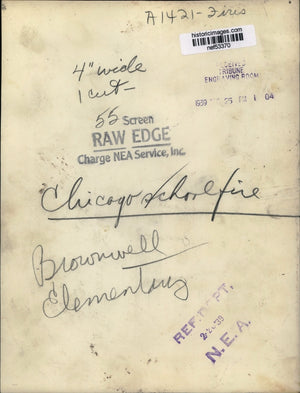 A1421-Fires
historicimages.com
nef53370
4" wide
1 cut-
RECEIVED
TRIBUNE
ENGRAVING ROOM
1939 25 PM 1 04
55 Screen
RAW EDGE
Charge NEA Service, Inc.
Chicago school fire
Brownwell
Elementary
REF. DEPT.
2-24-39
N. E. A.